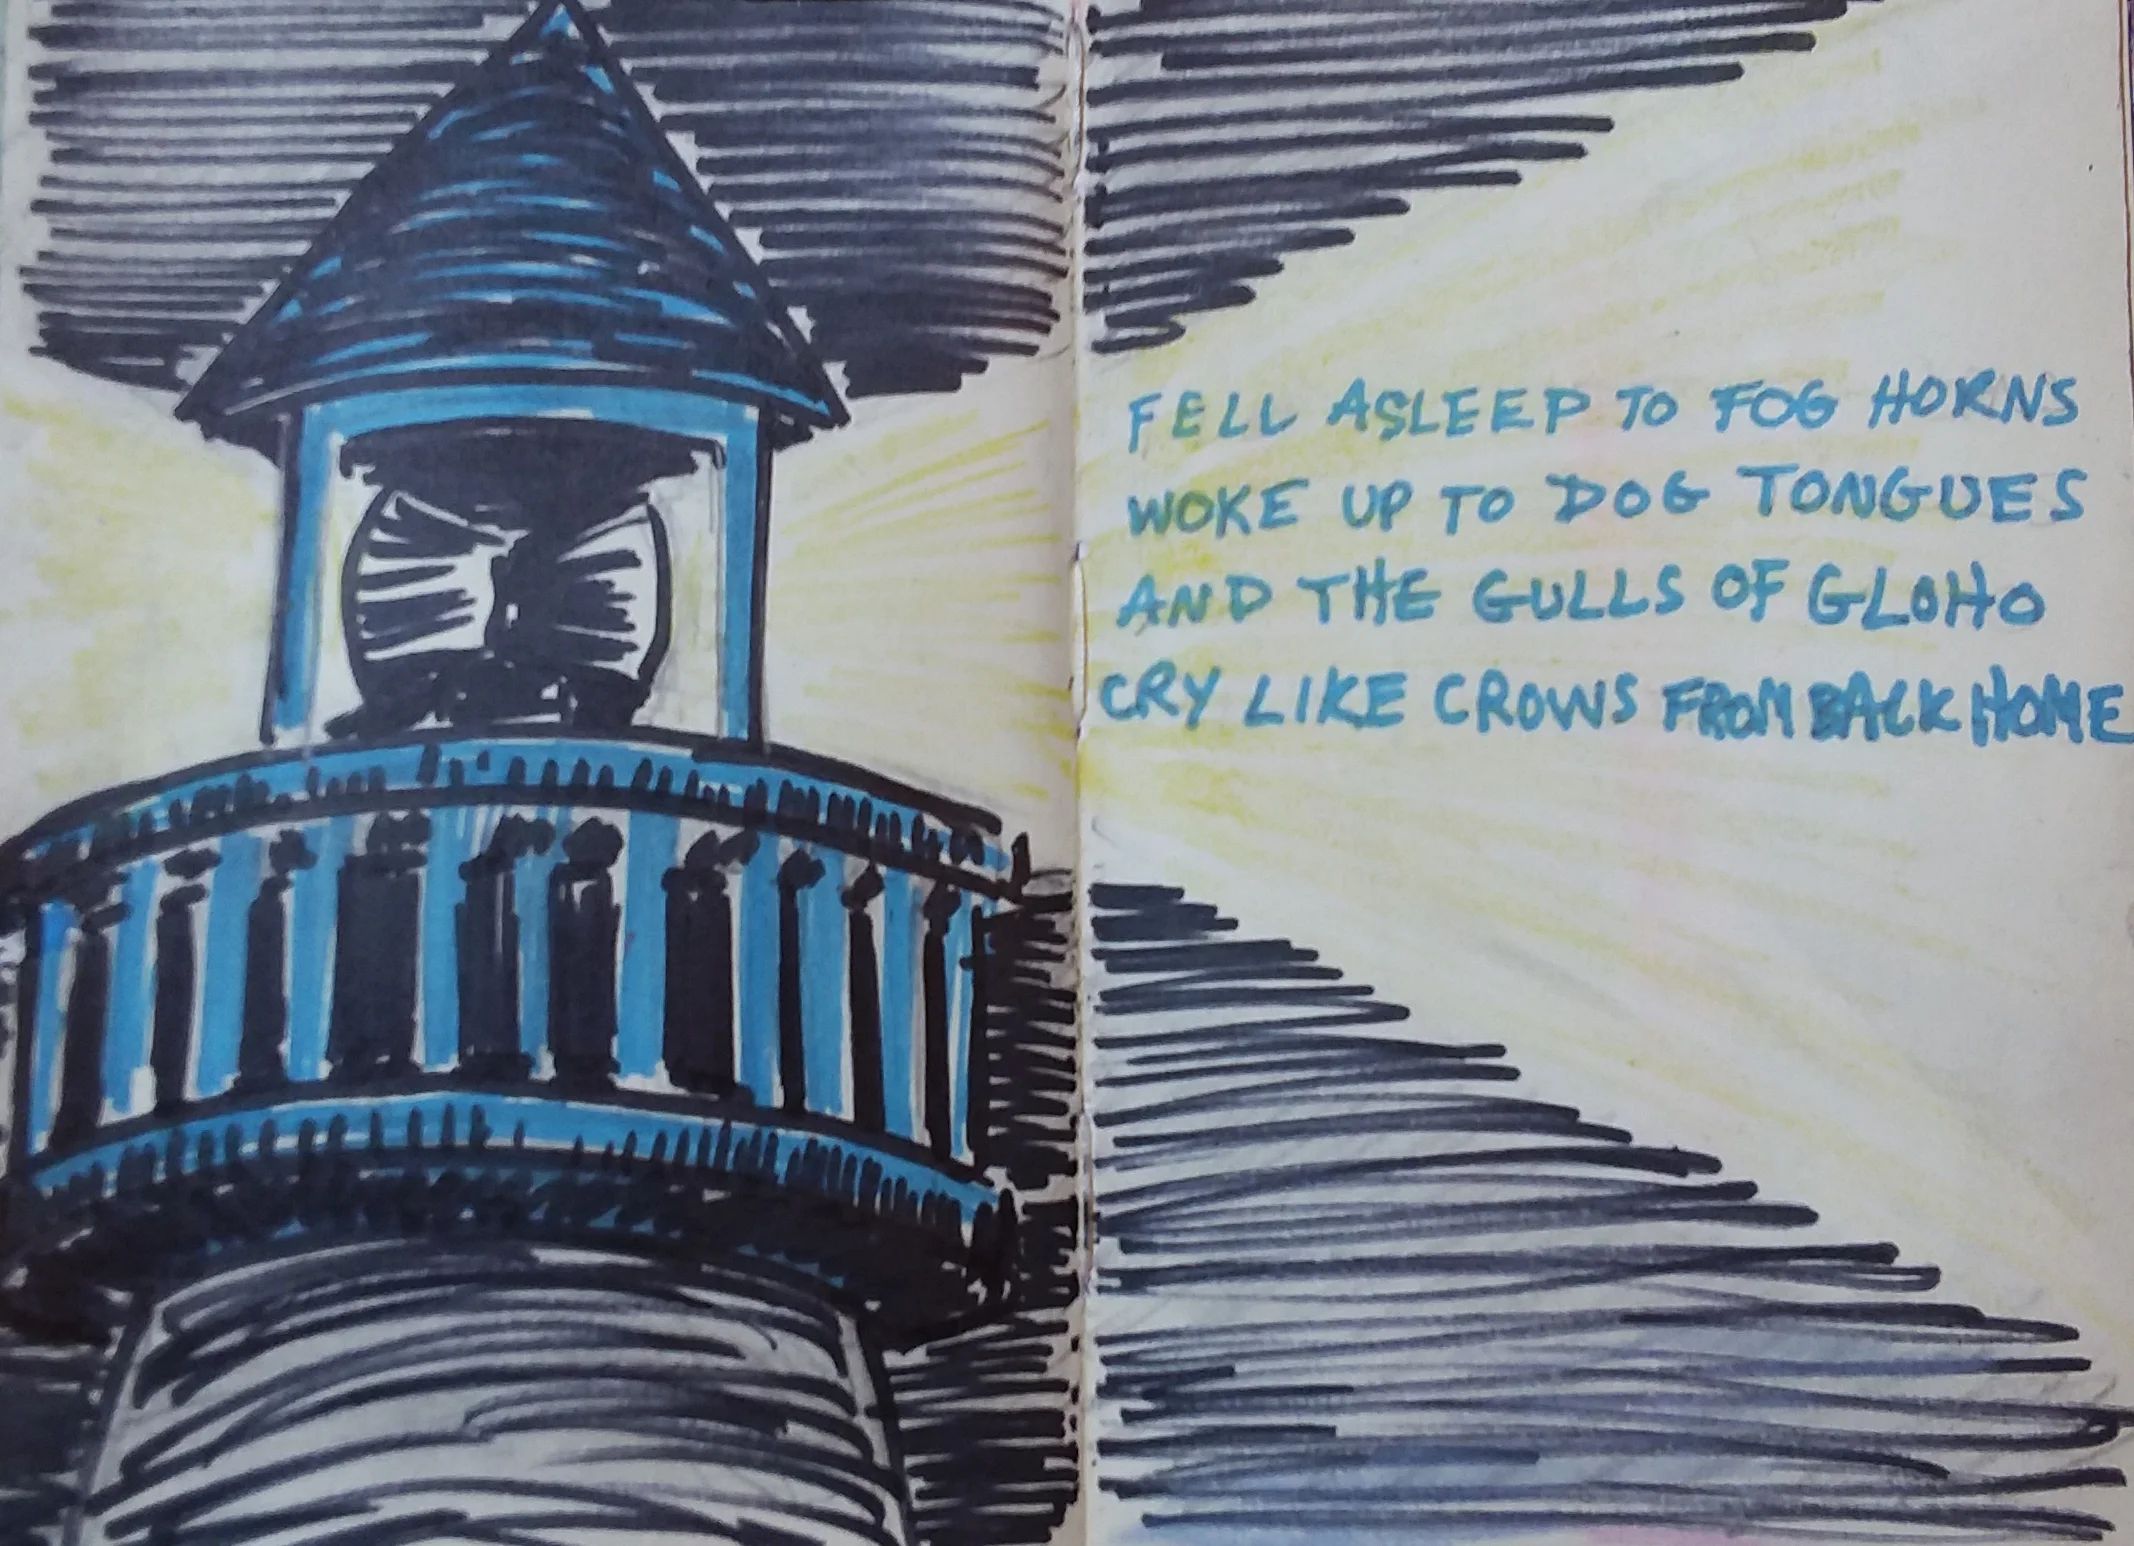 FELL ASLEEP TO FOG HORNS
WOKE UP TO DOG TONGUES
AND THE GULLS OF GLOHO
CRY LIKE CROWS FROM BACK HOME